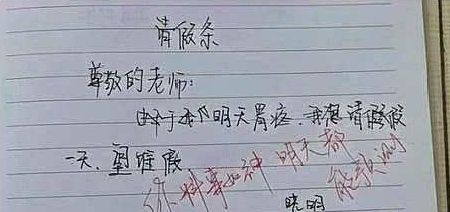 请假条
尊敬的老师:
由于我明天胃疼.我想请假
一天.望准假
你料事如神 明天都
能预测
晓明